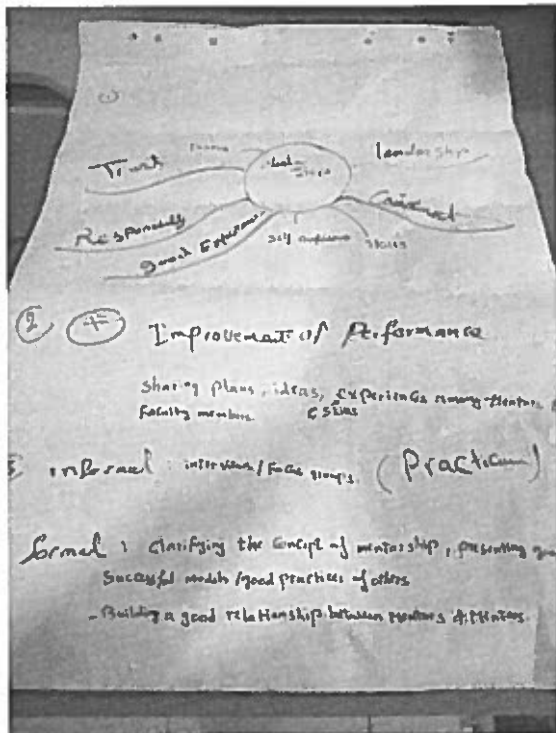 1
Trust
leadership
Responsibility
self confidence
skills
2 + Improvement of Performance
Sharing plans, ideas, experiences among mentors
Faculty members & skills
informal : interviews/Focus groups. (Practicum)
formal : Clarifying the concept of mentorship, presenting
Successful models/good practices of others
- Building a good relationship between mentors &